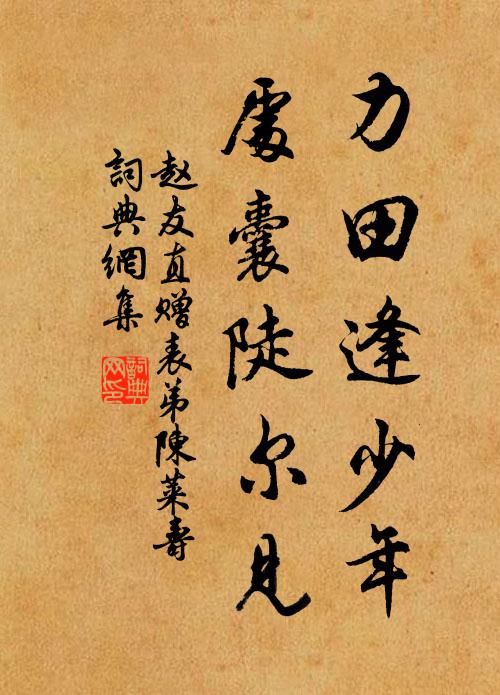 力田逢少年
處囊陡尔見
赵友直赠表弟陳莱壽
詞典網集
詞典网印